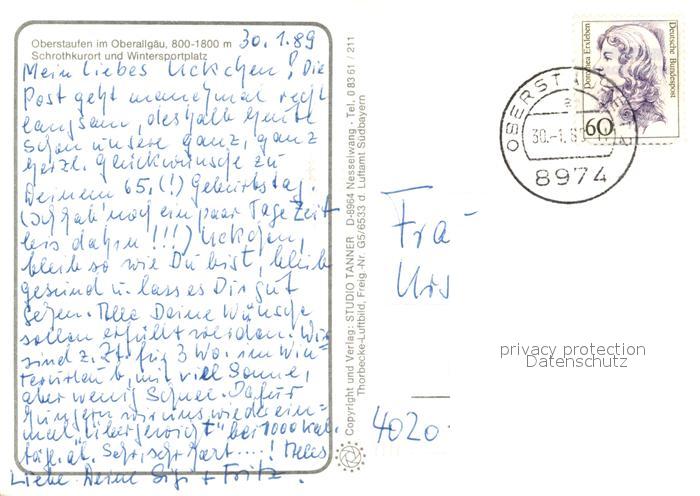 Oberstaufen im Oberallgäu, 800-1800 m
Schrothkurort und Wintersportplatz
30.1.89
Mein liebes Uckchen! Die
Post geht manchmal recht
langsam, deshalb heute
schon unsere ganz, ganz
herzl. Glückwünsche zu
Deinem 65. (!) Geburtstag.
(Ich hab' noch ein paar Tage Zeit
bis dahin !!!) Uckchen,
bleib so wie Du bist, bleib
gesund u. lass es Dir gut
gehen. Alle Deine Wünsche
sollen erfüllt werden. Wir
sind z. Zt. für 3 Wo. im Win=
terurlaub, mit viel Sonne,
aber wenig Schnee. Dafür
hungern wir uns wieder ein=
mal "Übergewicht" bei 1000 Kal.
tägl. ab. Sehr, sehr hart....! Alles
Liebe Deine Sigi + Fritz.
Copyright und Verlag: STUDIO TANNER D-8964 Nesselwang · Tel. 0 83 61 / 211
Thorbecke-Luftbild, Freig.-Nr. G5/6533 d. Luftamt Südbayern
Dorothea Erxleben
Deutsche Bundespost
60
30.-1.89
8974
Fra
4020
privacy protection
Datenschutz